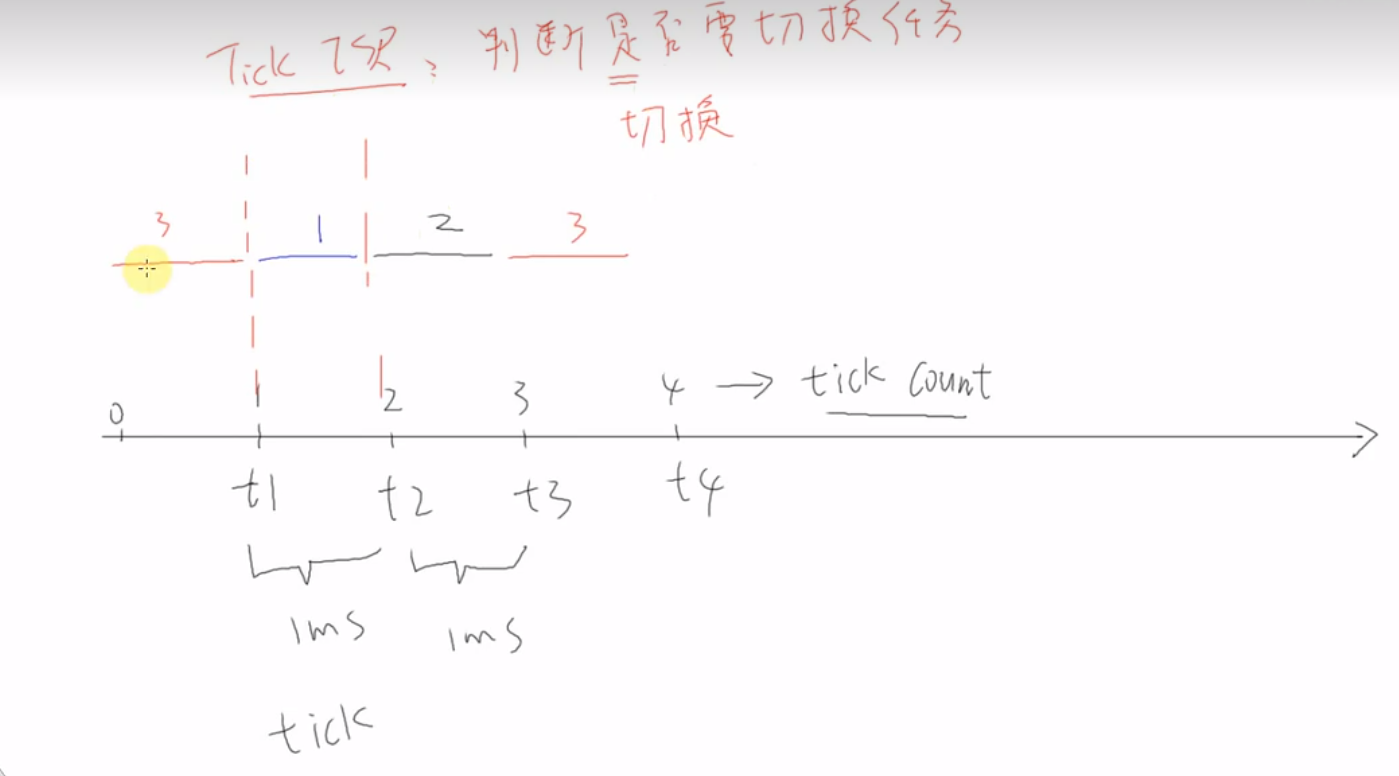 Tick ISR: 判断是否要切换任务
切换
3 1 2 3
0 1 2 3 4 → tick count
t1 t2 t3 t4
1ms 1ms
tick